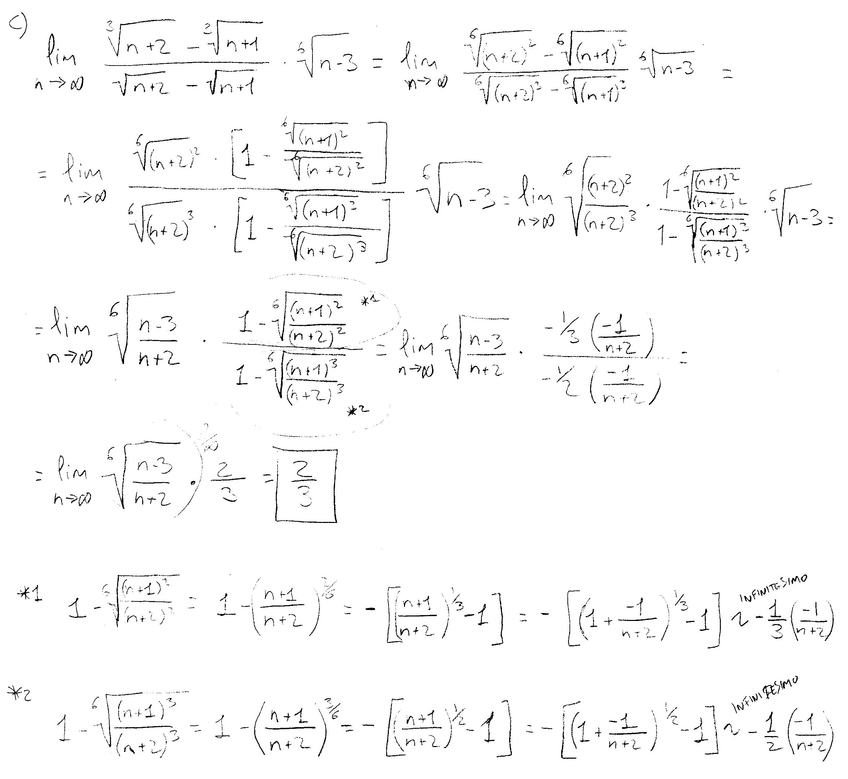 c)
lim n→∞ (∛(n+2) - ∛(n+1)) / (√(n+2) - √(n+1)) · ⁶√(n-3) = lim n→∞ (⁶√((n+2)²) - ⁶√((n+1)²)) / (⁶√((n+2)³) - ⁶√((n+1)³)) ⁶√(n-3) =
= lim n→∞ (⁶√((n+2)²) · [1 - ⁶√((n+1)²) / ⁶√((n+2)²)]) / (⁶√((n+2)³) · [1 - ⁶√((n+1)³) / ⁶√((n+2)³)]) ⁶√(n-3) = lim n→∞ ⁶√((n+2)² / (n+2)³) · (1 - ⁶√((n+1)² / (n+2)²)) / (1 - ⁶√((n+1)³ / (n+2)³)) · ⁶√(n-3) =
= lim n→∞ ⁶√((n-3) / (n+2)) · (1 - ⁶√((n+1)² / (n+2)²) *1) / (1 - ⁶√((n+1)³ / (n+2)³) *2) = lim n→∞ ⁶√((n-3) / (n+2)) · (-1/3 (-1 / (n+2))) / (-1/2 (-1 / (n+2))) =
= lim n→∞ ⁶√((n-3) / (n+2)) · 2/3 = 2/3
*1 1 - ⁶√((n+1)² / (n+2)²) = 1 - ((n+1) / (n+2))^(2/6) = - [((n+1) / (n+2))^(1/3) - 1] = - [(1 + -1 / (n+2))^(1/3) - 1] ~ INFINITESIMO -1/3 (-1 / (n+2))
*2 1 - ⁶√((n+1)³ / (n+2)³) = 1 - ((n+1) / (n+2))^(3/6) = - [((n+1) / (n+2))^(1/2) - 1] = - [(1 + -1 / (n+2))^(1/2) - 1] ~ INFINITESIMO -1/2 (-1 / (n+2))